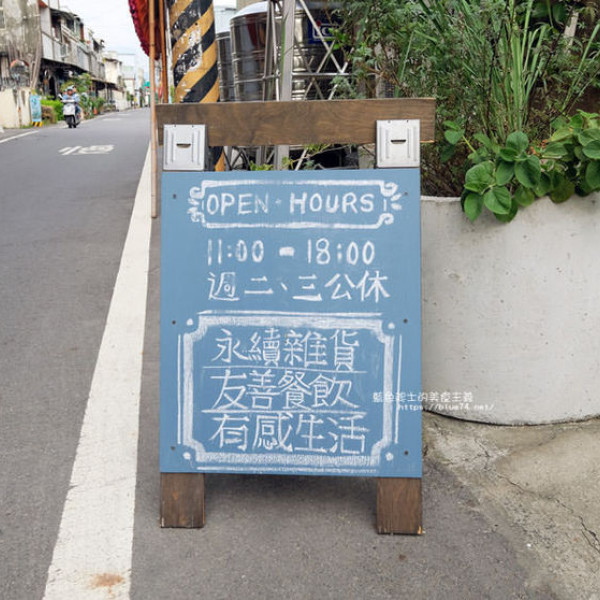 OPEN HOURS
11:00 - 18:00
週二、三公休
永續雜貨
友善餐飲
有感生活
藍色起士的美食主義
https://blue74.net/